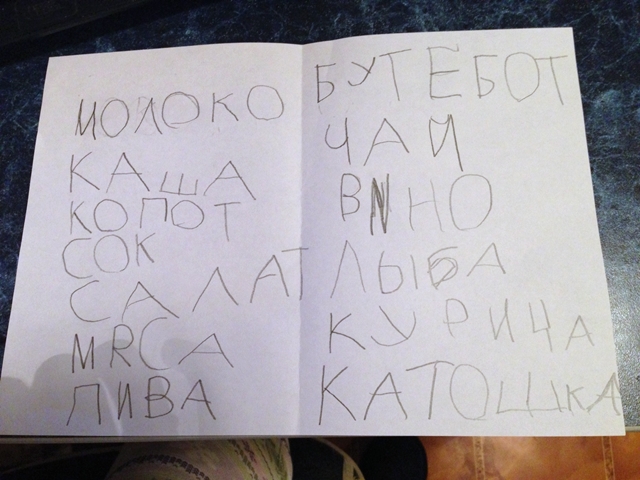 МОЛОКО
КАША
КОПОТ
СОК
САЛАТ
МЯСА
ПИВА
БУТЕБОТ
ЧАЙ
ВИНО
ЛЫБА
КУРИЧА
КАТОШКА